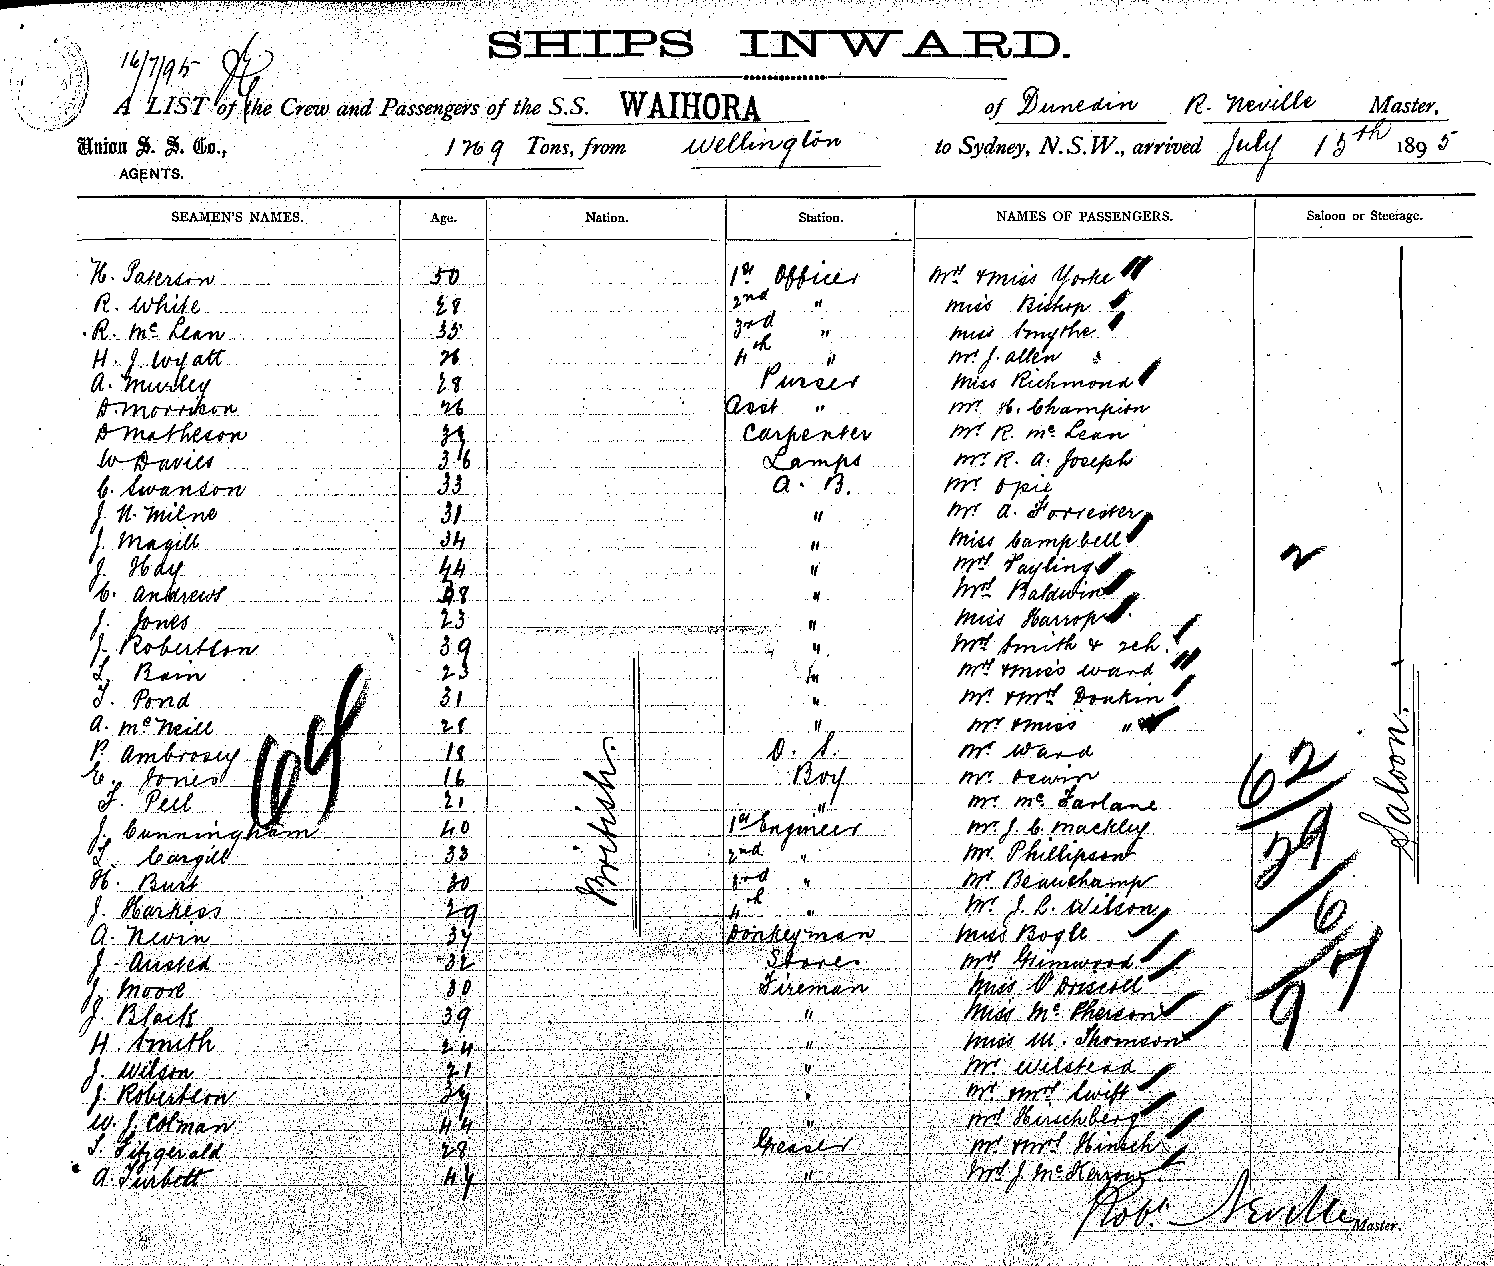 SHIPS INWARD.
16/7/95
A LIST of the Crew and Passengers of the S.S. WAIHORA of Dunedin R. Neville Master,
Union S. S. Co., 1269 Tons, from Wellington to Sydney, N.S.W., arrived July 15th 1895
AGENTS.
SEAMEN'S NAMES. Age. Nation. Station. NAMES OF PASSENGERS. Saloon or Steerage.
H. Paterson 50 1st Officer Mrs & Miss Yorke
R. White 28 2nd " Miss Bishop
R. McLean 35 3rd " Miss Smythe
H. J. Wyatt 26 4th " Mr J. Allen
A. Mursley 28 Purser Miss Richmond
D. Morrison 26 Asst " Mr H. Champion
D Matheson Carpenter Mr R. McLean
W Davies 36 Lamps Mr R. A. Joseph
C. Swanson 33 A. B. Mr Opie
J. N. Milne 31 " Mr A. Forrester
J. Magill 34 " Miss Campbell
J. Hay 44 " Mrs Tayling 2
C. Andrews 28 " Mrs Baldwin
J. Jones 23 " Miss Harrop
J. Robertson 39 " Mrs Smith & 2ch.
L. Bain 23 " Mrs & Miss Ward
T. Pond 31 " Mr & Mrs Donkin
A. McNeill 28 " Mr & Miss "
P. Ambrosey 18 O. S. Mr Ward
C. Jones 16 Boy Mr Oswin
F. Peel 21 " Mr McFarlane
J. Cunningham 40 1st Engineer Mr J. C. Mackley
L. Cargill 33 2nd " Mr Phillipson
H. Burt 30 3rd " Mr Beauchamp
J. Harkess 29 4th " Mr J. L. Wilson
A. Nevin 37 Donkeyman Miss Bogle
J. Austed 32 Stores Mrs Grimwood
J. Moore 30 Fireman Miss O'Driscoll
J. Black 39 " Miss McPherson
H. Smith 24 " Miss M. Thomson
J. Wilson 21 " Mr Wilstead
J. Robertson 34 " Mr & Mrs Swift
W. J. Colman 44 " Mrs Hirschberg
T. Fitzgerald 28 Greaser Mr & Mrs Hinsch
A. Turbott 44 " Mrs J. McKerrow
64
British.
62
39
6
97
Saloon.
Robt Neville Master.